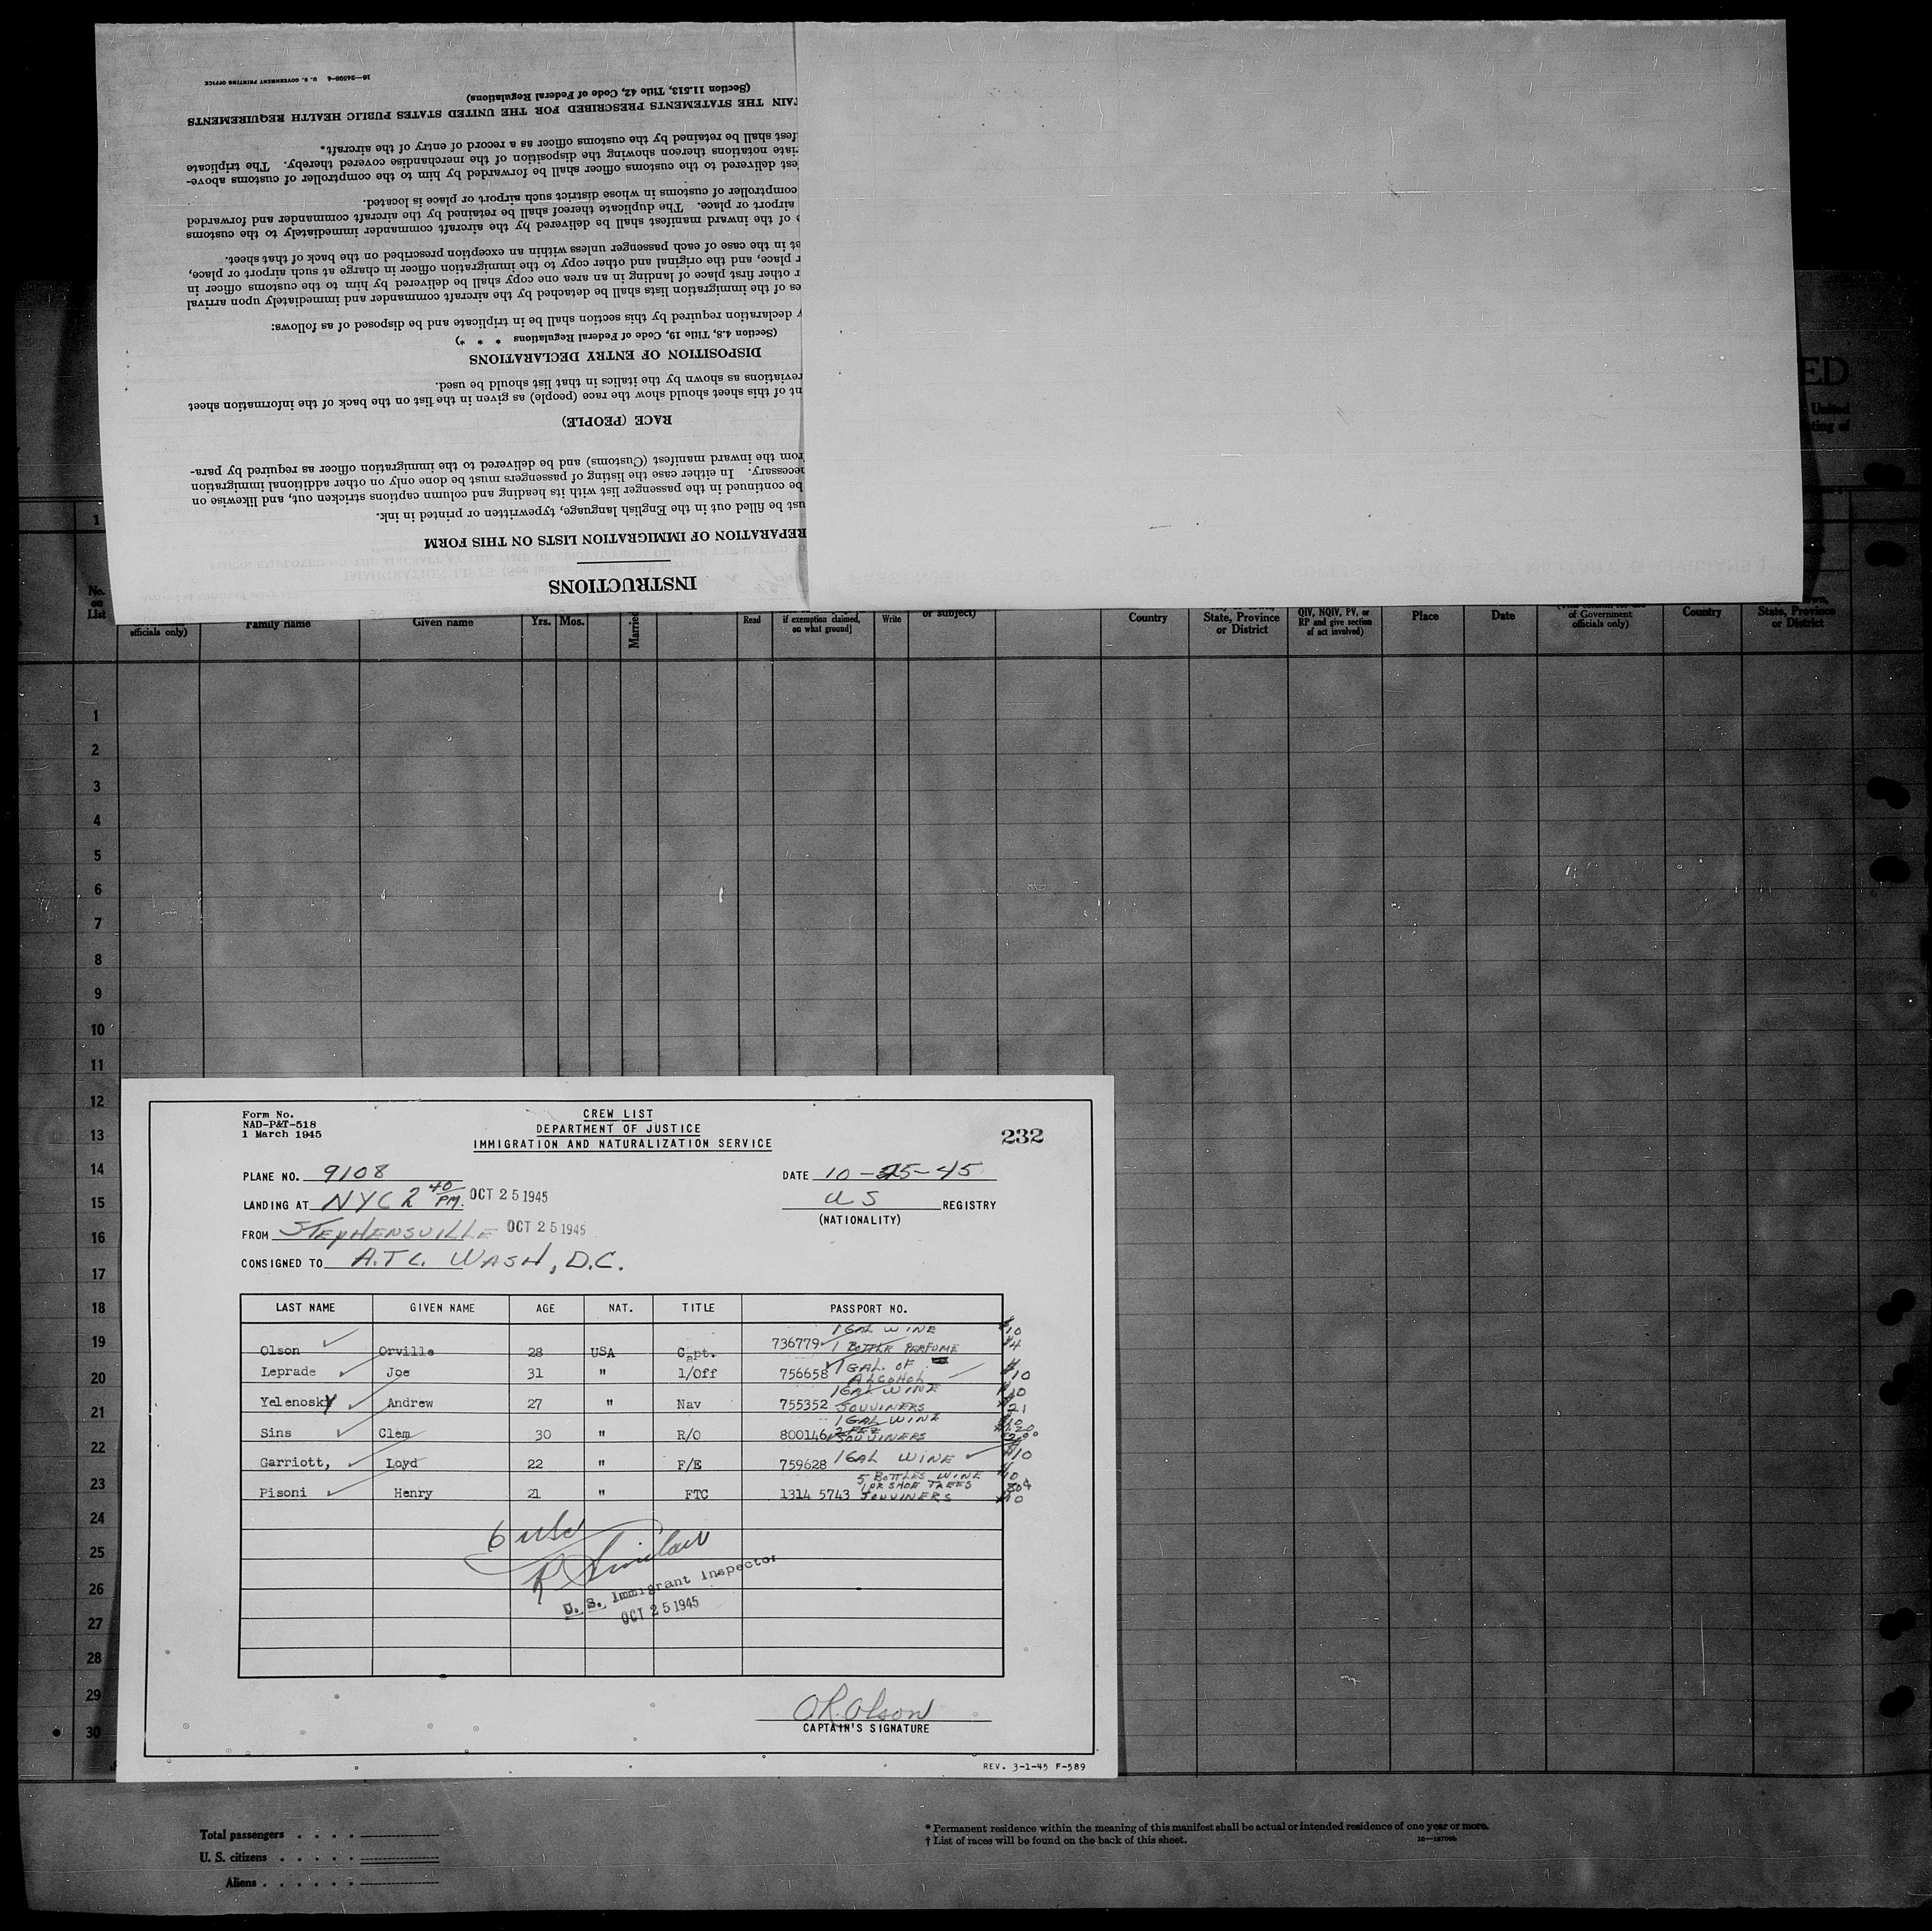 16—24598-4 U. S. GOVERNMENT PRINTING OFFICE
INSTRUCTIONS
REPARATION OF IMMIGRATION LISTS ON THIS FORM
ust be filled out in the English language, typewritten or printed in ink.
be continued in the passenger list with its heading and column captions stricken out, and likewise on
necessary. In either case the listing of passengers must be done only on other additional immigration
rom the inward manifest (Customs) and be delivered to the immigration officer as required by para-
RACE (PEOPLE)
nt of this sheet should show the race (people) as given in the list on the back of the information sheet
reviations as shown by the italics in that list should be used.
DISPOSITION OF ENTRY DECLARATIONS
(Section 4.8, Title 19, Code of Federal Regulations * * *)
y declaration required by this section shall be in triplicate and be disposed of as follows:
es of the immigration lists shall be detached by the aircraft commander and immediately upon arrival
r other first place of landing in an area one copy shall be delivered by him to the customs officer in
r place, and the original and other copy to the immigration officer in charge at such airport or place,
et in the case of each passenger unless within an exception prescribed on the back of that sheet.
of the inward manifest shall be delivered by the aircraft commander immediately to the customs
airport or place. The duplicate thereof shall be retained by the aircraft commander and forwarded
comptroller of customs in whose district such airport or place is located.
est delivered to the customs officer shall be forwarded by him to the comptroller of customs above-
iate notations thereon showing the disposition of the merchandise covered thereby. The triplicate
fest shall be retained by the customs officer as a record of entry of the aircraft.
TAIN THE STATEMENTS PRESCRIBED FOR THE UNITED STATES PUBLIC HEALTH REQUIREMENTS
(Section 11.513, Title 42, Code of Federal Regulations)
ED
United
ting of
1
No. on List
officials only)
Family name
Given name
Yrs.
Mos.
Married
Read
if exemption claimed, on what ground]
Write
or subject)
Country
State, Province or District
QIV, NQIV, PV, or RP and give section of act involved)
Place
Date
of Government officials only)
Country
State, Province or District
1
2
3
4
5
6
7
8
9
10
11
12
13
14
15
16
17
18
19
20
21
22
23
24
25
26
27
28
29
30
Form No.
NAD-P&T-518
1 March 1945
CREW LIST
DEPARTMENT OF JUSTICE
IMMIGRATION AND NATURALIZATION SERVICE
232
PLANE NO. 9108
DATE 10-25-45
LANDING AT NYC 2 40 PM. OCT 25 1945
US REGISTRY
(NATIONALITY)
FROM STEPHENSVILLE OCT 25 1945
CONSIGNED TO A.T.C. WASH, D.C.
LAST NAME GIVEN NAME AGE NAT. TITLE PASSPORT NO.
1 GAL WINE $10
Olson Orville 28 USA Capt. 736779 1 BOTTLE PERFUME $4
Leprade Joe 31 " 1/Off 756658 1 GAL. OF ALCOHOL $10
1 GAL WINE $10
Yelenosky Andrew 27 " Nav 755352 SOUVINERS 21
1 GAL WINE $10
Sins Clem 30 " R/O 800146 SOUVINERS
Garriott, Loyd 22 " F/E 759628 1 GAL WINE $10
5 BOTTLES WINE $10
1 PR SHOE TREES
Pisoni Henry 21 " FTC 1314 5743 SOUVINERS
6 usc
R Sinclair
U. S. Immigrant Inspector
OCT 25 1945
O.R. Olson
CAPTAIN'S SIGNATURE
REV. 3-1-45 F-589
Total passengers . . . .
U. S. citizens . . . . .
Aliens . . . . . .
* Permanent residence within the meaning of this manifest shall be actual or intended residence of one year or more.
† List of races will be found on the back of this sheet.